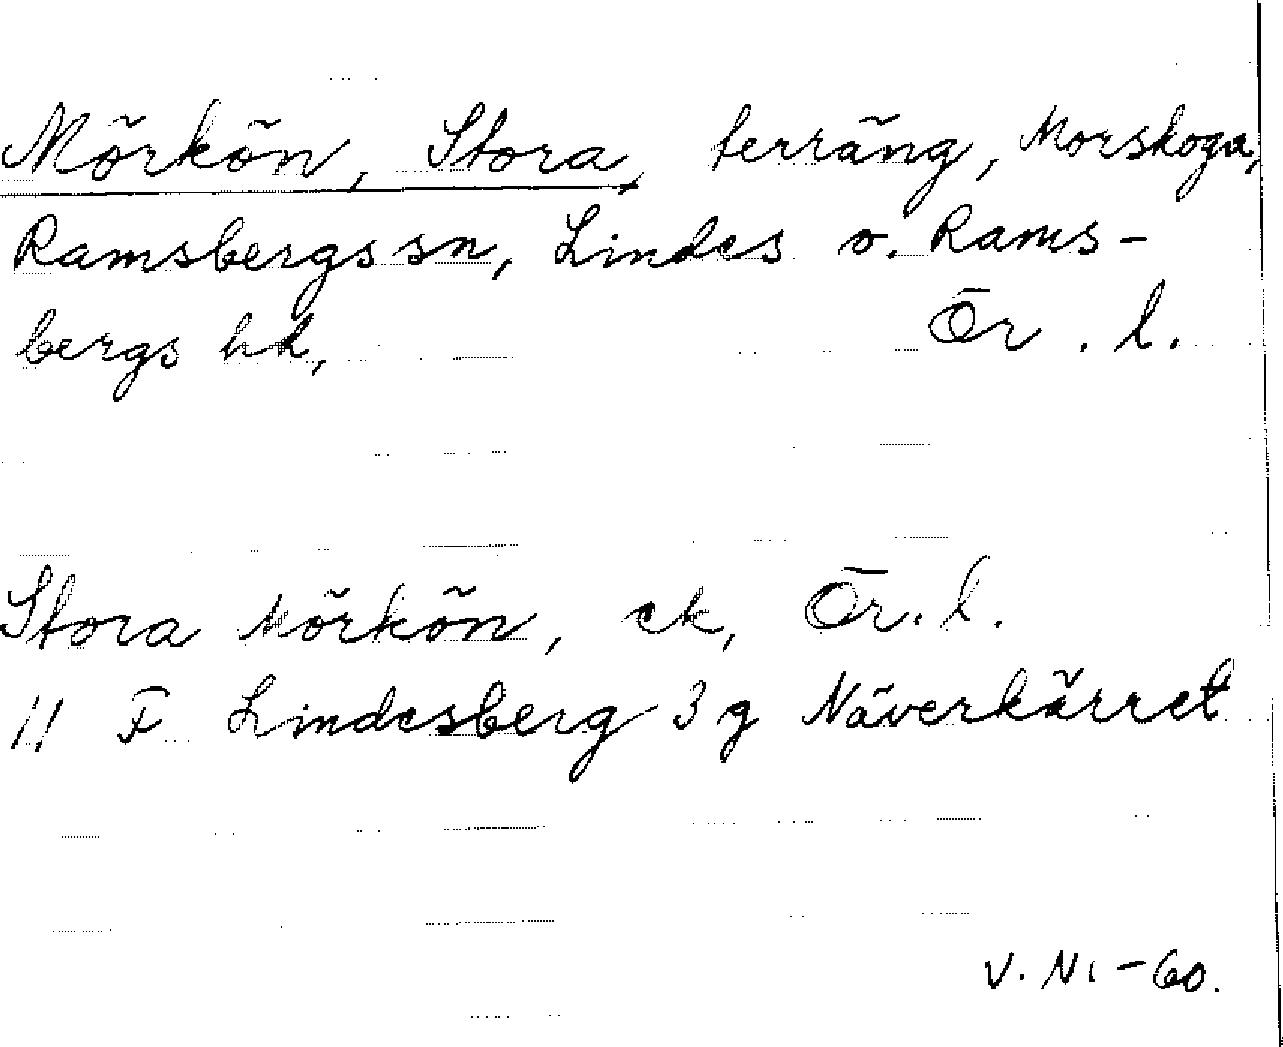 Mörkön, Stora, terräng, Morskoga,
Ramsbergs sn, Lindes o. Rams-
bergs hd, Ör. l.
Stora Mörkön, ek, Ör. l.
11 F Lindesberg 3 g Näverkärret
V. N. -60.